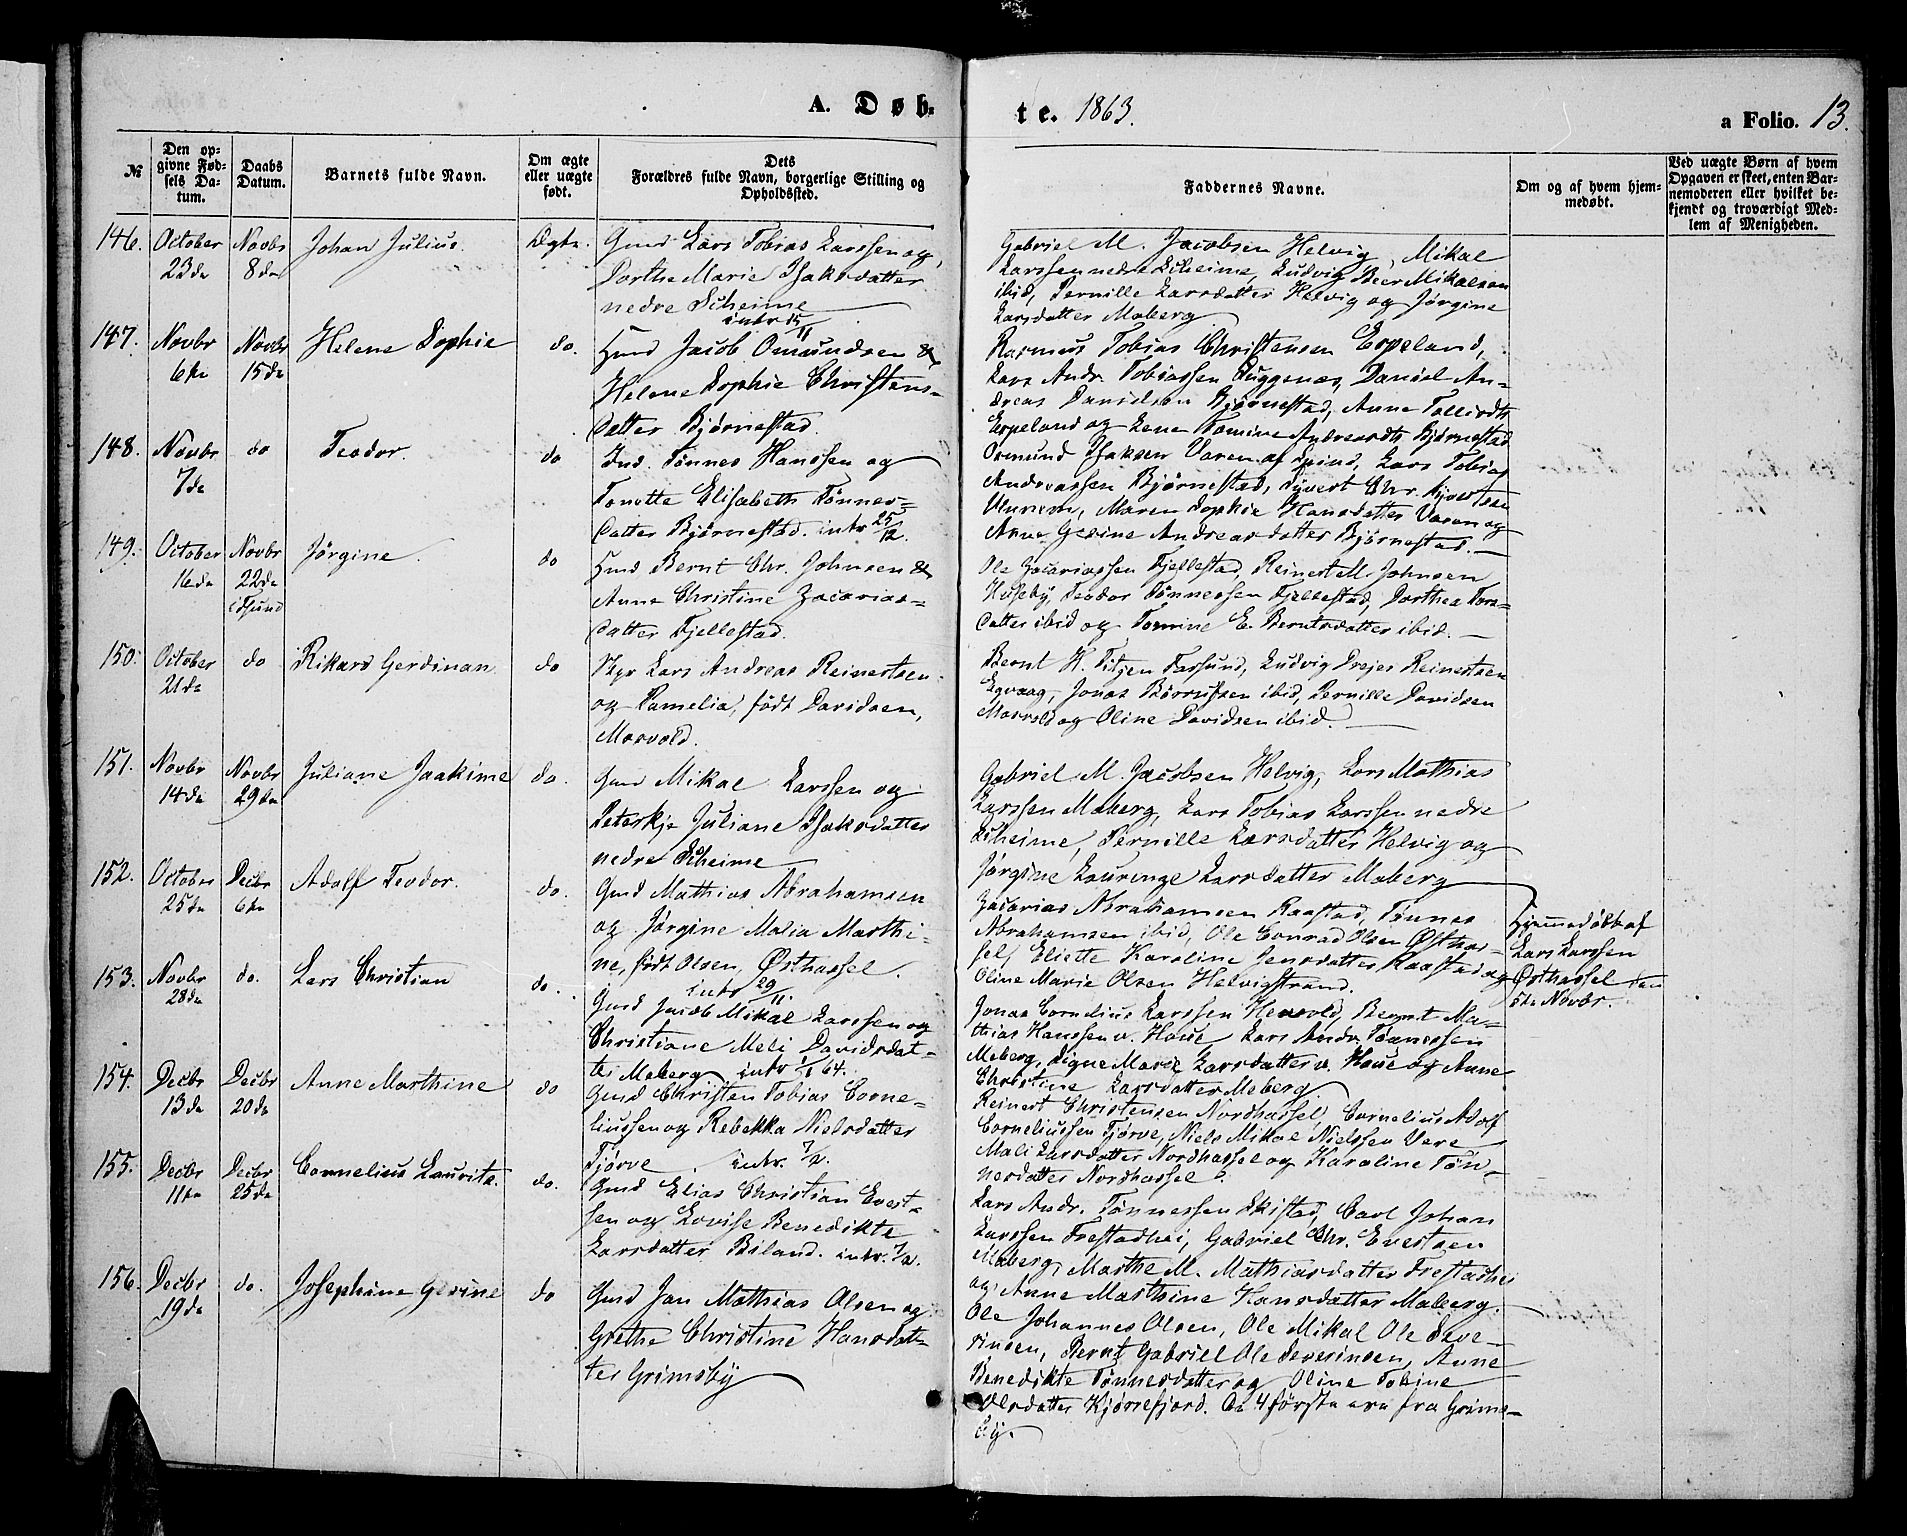 A. Døb-
te. 1863.
a Folio. 13.
№
Den op-
givne Fød-
sels Da-
tum.
Daabs
Datum.
Barnets fulde Navn.
Om ægte
eller uægte
født.
Dets
Forældres fulde Navn, borgerlige Stilling og
Opholdssted.
Faddernes Navne.
Om og af hvem hjem-
medøbt.
Ved uægte Børn af hvem
Opgaven er skeet, enten Bar-
nemoderen eller hvilket be-
kjendt og troværdigt Med-
lem af Menigheden.
146.
October
23de
Novbr
8de
Johan Julius.
Ægte.
Gmd Lars Tobias Larssen og
Dorthe Marie Isaksdatter
nedre Scheime
Gabriel M. Jacobsen Helvig, Mikal
Larssen nedre Scheime, Ludvig Beer Mikalsen
ibid, Pernille Larsdatter Helvig og Jørgine
Larsdatter Maberg
147.
Novbr
6te
Novbr
15de
Helene Sophie
do.
intr 15/11
Hmd Jacob Omundsen &
Helene Sophie Christens-
datter Bjørnestad.
Rasmus Tobias Christensen Erpeland,
Lars Andr. Tobiassen Duggenæs, Daniel An-
dreas Danielsen Bjørnestad, Anne Tollisdtr
Erpeland og Lene Tomine Andreasdtr Bjørnestad
148.
Novbr
7de
do
Teodor.
do
Ind. Tønnes Hanssen og
Tonette Elisabeth Tønnes-
datter Bjørnestad. intr 25/12.
Osmund Isaksen Varen af Spind, Lars Tobias
Andreassen Bjørnestad, Syvert Chr. Syvertsen
Ulunem, Maren Sophie Hansdatter Varen og
Anne Gesine Andreasdatter Bjørnestad.
149.
October
16de
Novbr
22de
i Fsund
Jørgine.
do
Hmd Bernt Chr. Johnsen &
Anne Christine Zacarias-
datter Fjellestad.
Ole Zacariassen Fjellestad, Reinert M. Johnsen
Huseby, Teodor Tønnessen Fjellestad, Dorthea Tors-
datter ibid og Tomine E. Berntsdatter ibid.
150.
October
21de
do
Rikard Gerdinan
do
Styr Lars Andreas Reinertsen
og Pamelia, født Davidsen,
Mosvold.
Bernt H. Titjen Farsund, Ludvig Drejer Reinertsen
Egvaag, Jonas Børrufsen ibid, Pernille Davidsen
Mosvold og Oline Davidsen ibid.
151.
Novbr
14de
Novbr
29de
Juliane Joakime
do.
Gmd Mikal Larssen og
Peterkje Juliane Isaksdatter
nedre Scheime
Gabriel M. Jacobsen Helvig, Lars Mathias
Larssen Maberg, Lars Tobias Larssen nedre
Scheime, Pernille Larsdatter Helvig og
Jørgine Lauringe Larsdatter Maberg
152.
October
25de
Decbr
6te
Adolf Teodor.
do.
Gmd Mathias Abrahamsen
og Jørgine Malia Marthi-
ne, født Olsen, Østhassel.
intr 29/11.
Zacarias Abrahamsen Raastad, Tønnes
Abrahamsen ibid, Ole Conrad Olsen Østhas-
sel, Eliette Karoline Jensdatter Raastad og
Oline Marie Olsen Helvigstrand.
Hjemmedøbt af
Lars Larssen
Østhassel den
5te Novbr.
153.
Novbr
28de
do.
Lars Christian
do.
Gmd Jacob Mikal Larssen og
Christiane Meli Davidsdat-
ter Maberg intr 1/1 64.
Jonas Cornelius Larssen Hervold, Bernt Ma-
thias Hanssen v. Haue, Lars Andr. Tønnessen
Maberg, Signe Marie Larsdatter v. Haue og Anne
Christine Larsdatter Maberg.
154.
Decbr
13de
Decbr
20de
Anne Marthine
do
Gmd Christen Tobias Corne-
liussen og Rebekka Nielsdatter
Tjørve. intr. 7/2.
Reinert Christensen Nordhassel, Cornelius Adolf
Corneliussen Tjørve, Niels Mikal Nielssen Vere
Mali Larsdatter Nordhassel og Karoline Tøn-
nesdatter Nordhassel.
155.
Decbr
11te
Decbr
25de
Cornelius Lauritz.
do.
Gmd Elias Christian Evert-
sen og Lovise Benedikte
Larsdatter Biland. intr. 7/2.
Lars Andr. Tønnessen Skistad, Carl Johan
Larssen Frestadhei, Gabriel Chr. Evertsen
Maberg, Marthe M. Mathiasdatter Frestadhei
og Anne Marthine Hansdatter Maberg.
156.
Decbr
19de
do.
Josephine Gesine
do
Gmd Jan Mathias Olsen og
Grethe Christine Hansdat-
ter Grimsby
Ole Johannes Olsen, Ole Mikal Ole Seve-
rinsen, Bernt Gabriel Ole Severinsen, Anne
Benedikte Tønnesdatter og Oline Tobine
Olsdatter Kjørrefjord. De 4 første ere fra Grims-
by.